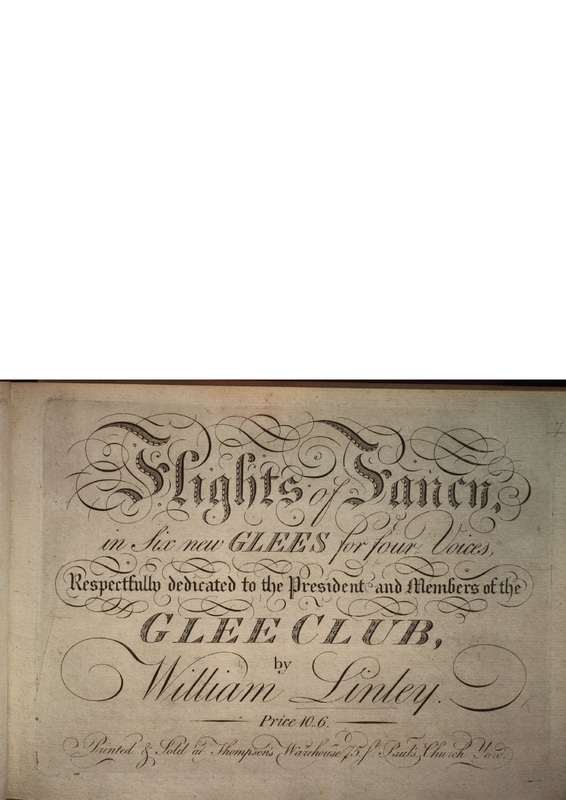 Flights of Fancy,
in Six new GLEES for four Voices,
Respectfully dedicated to the President and Members of the
GLEE CLUB,
by
William Linley.
Price 10.6.
Printed & Sold at Thompson's Warehouse, 75, St. Paul's Church Yard.